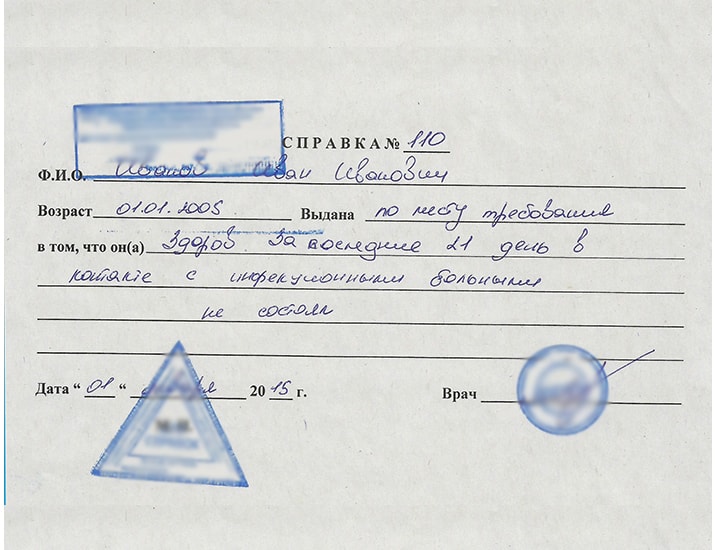 СПРАВКА № 110
Ф.И.О. Иванов Иван Иванович
Возраст 01.01.2005 Выдана по месту требования
в том, что он(а) Здоров. За последние 21 день в
контакте с инфекционными больными
не состоял
Дата “ 01 “ 20 15 г. Врач